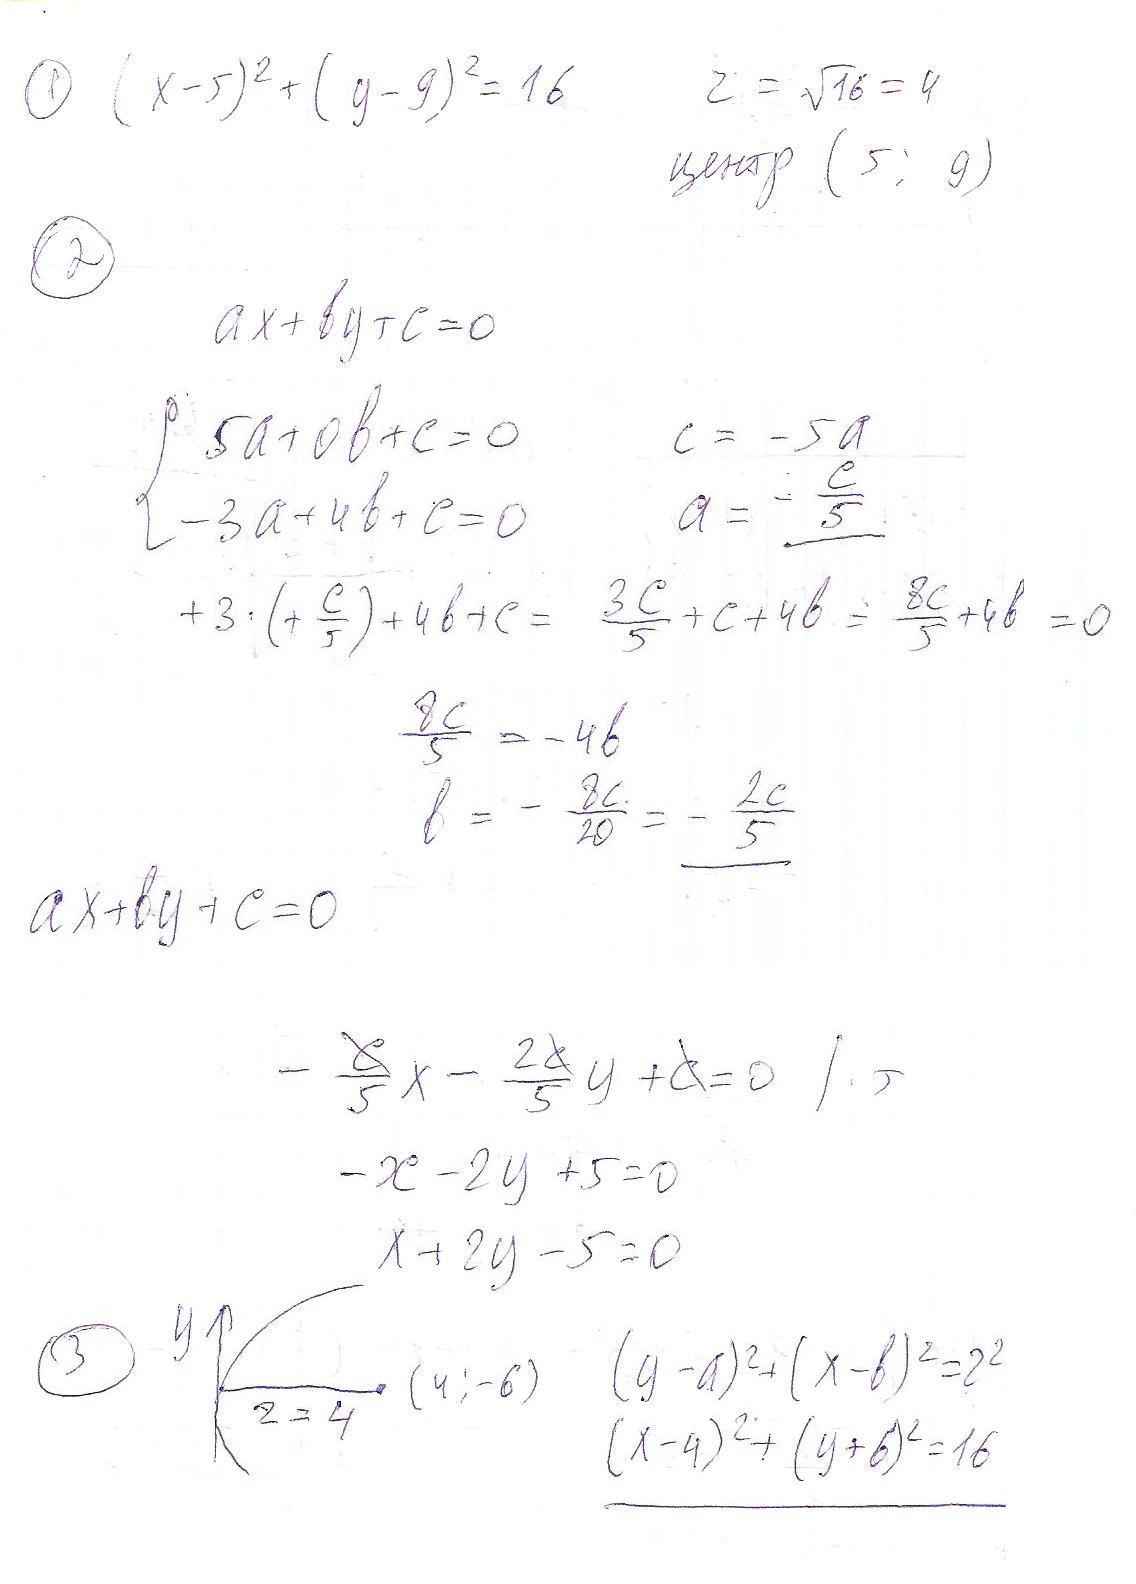 ① (x-5)²+(y-9)²=16 r = √16 = 4
центр (5; 9)
②
ax+by+c=0
{ 5a+0b+c=0 c = -5a
-3a+4b+c=0 a = -c/5
+3·(+c/5)+4b+c = 3c/5+c+4b = 8c/5+4b =0
8c/5 = -4b
b = - 8c/20 = - 2c/5
ax+by+c=0
- c/5 x - 2c/5 y + c = 0 /·5
-x-2y+5=0
x+2y-5=0
③ y (4;-6) (y-a)²+(x-b)²=r²
r=4 (x-4)²+(y+6)²=16